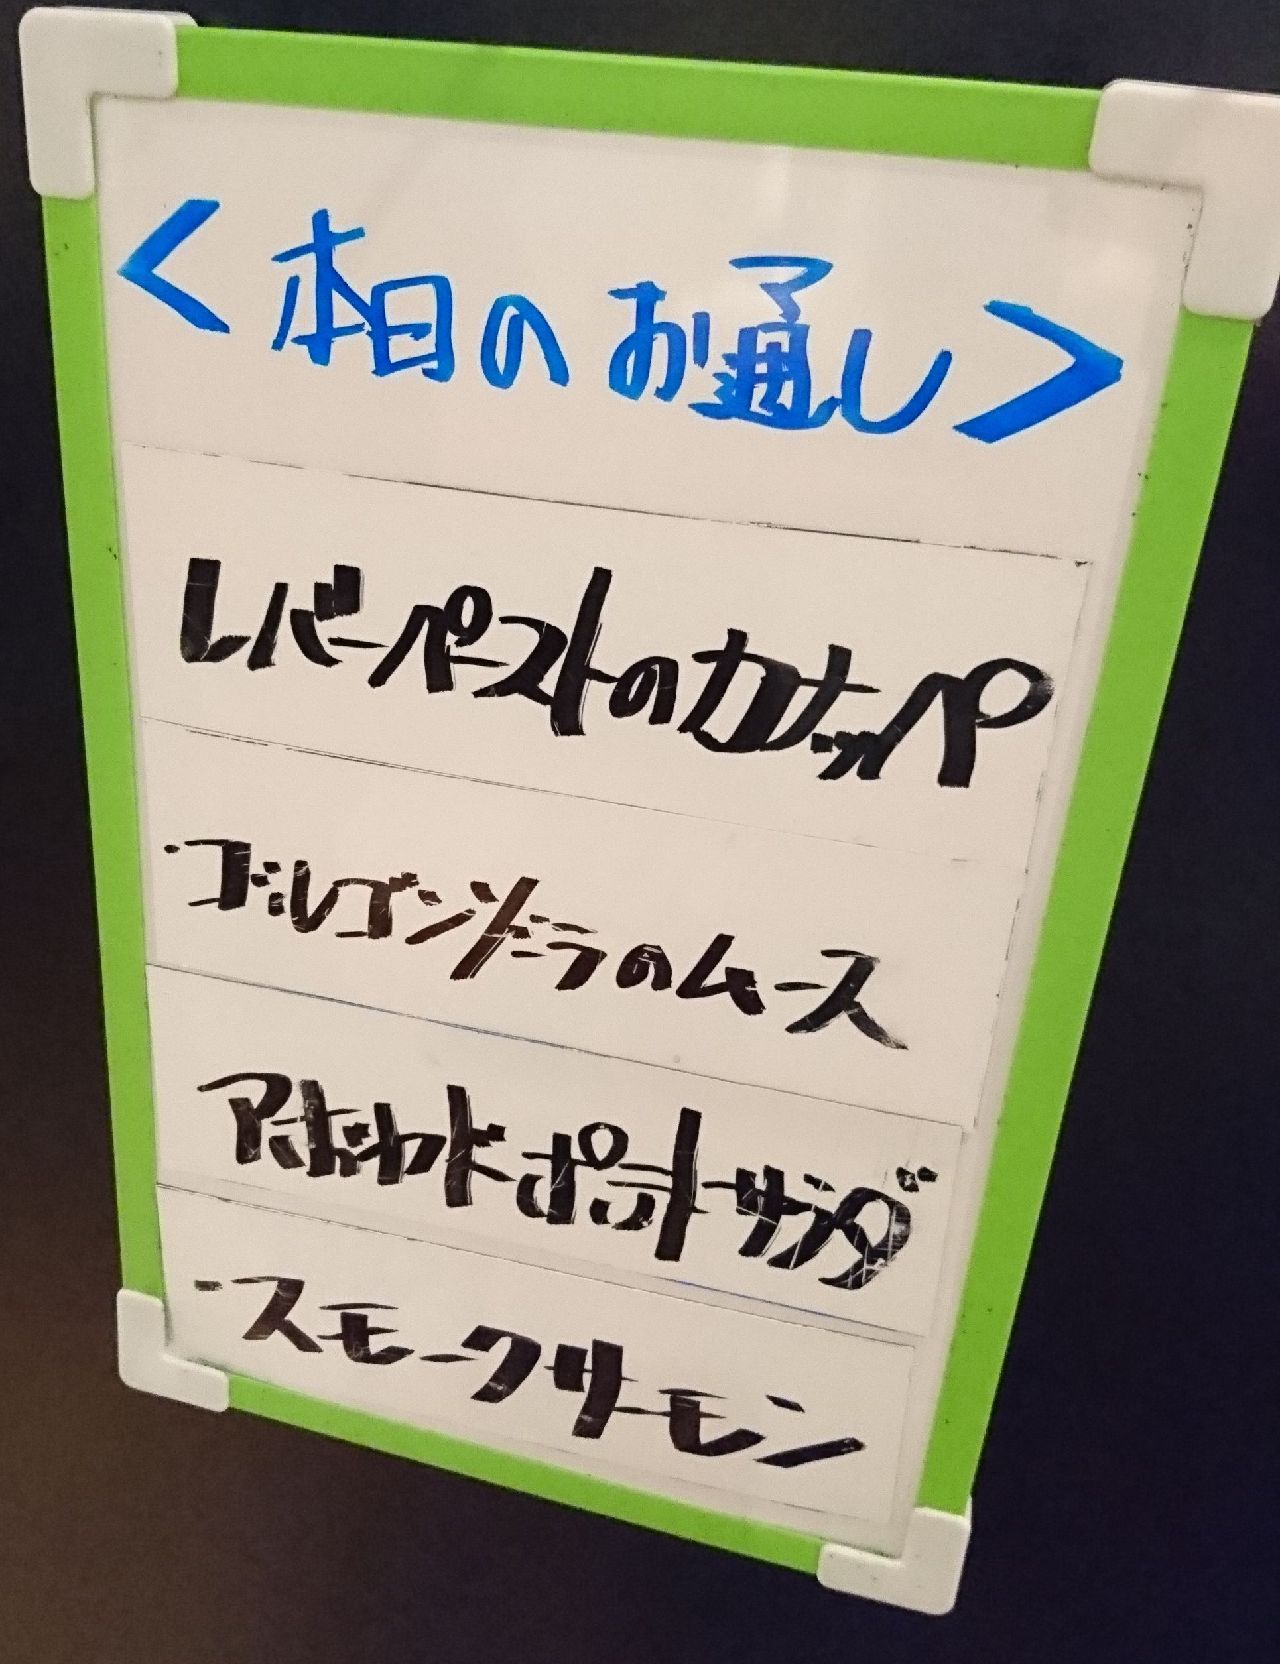 ＜本日のお通し＞
レバーペーストのカナッペ
・ゴルゴンゾーラのムース
ポテトサラダ
・スモークサーモン